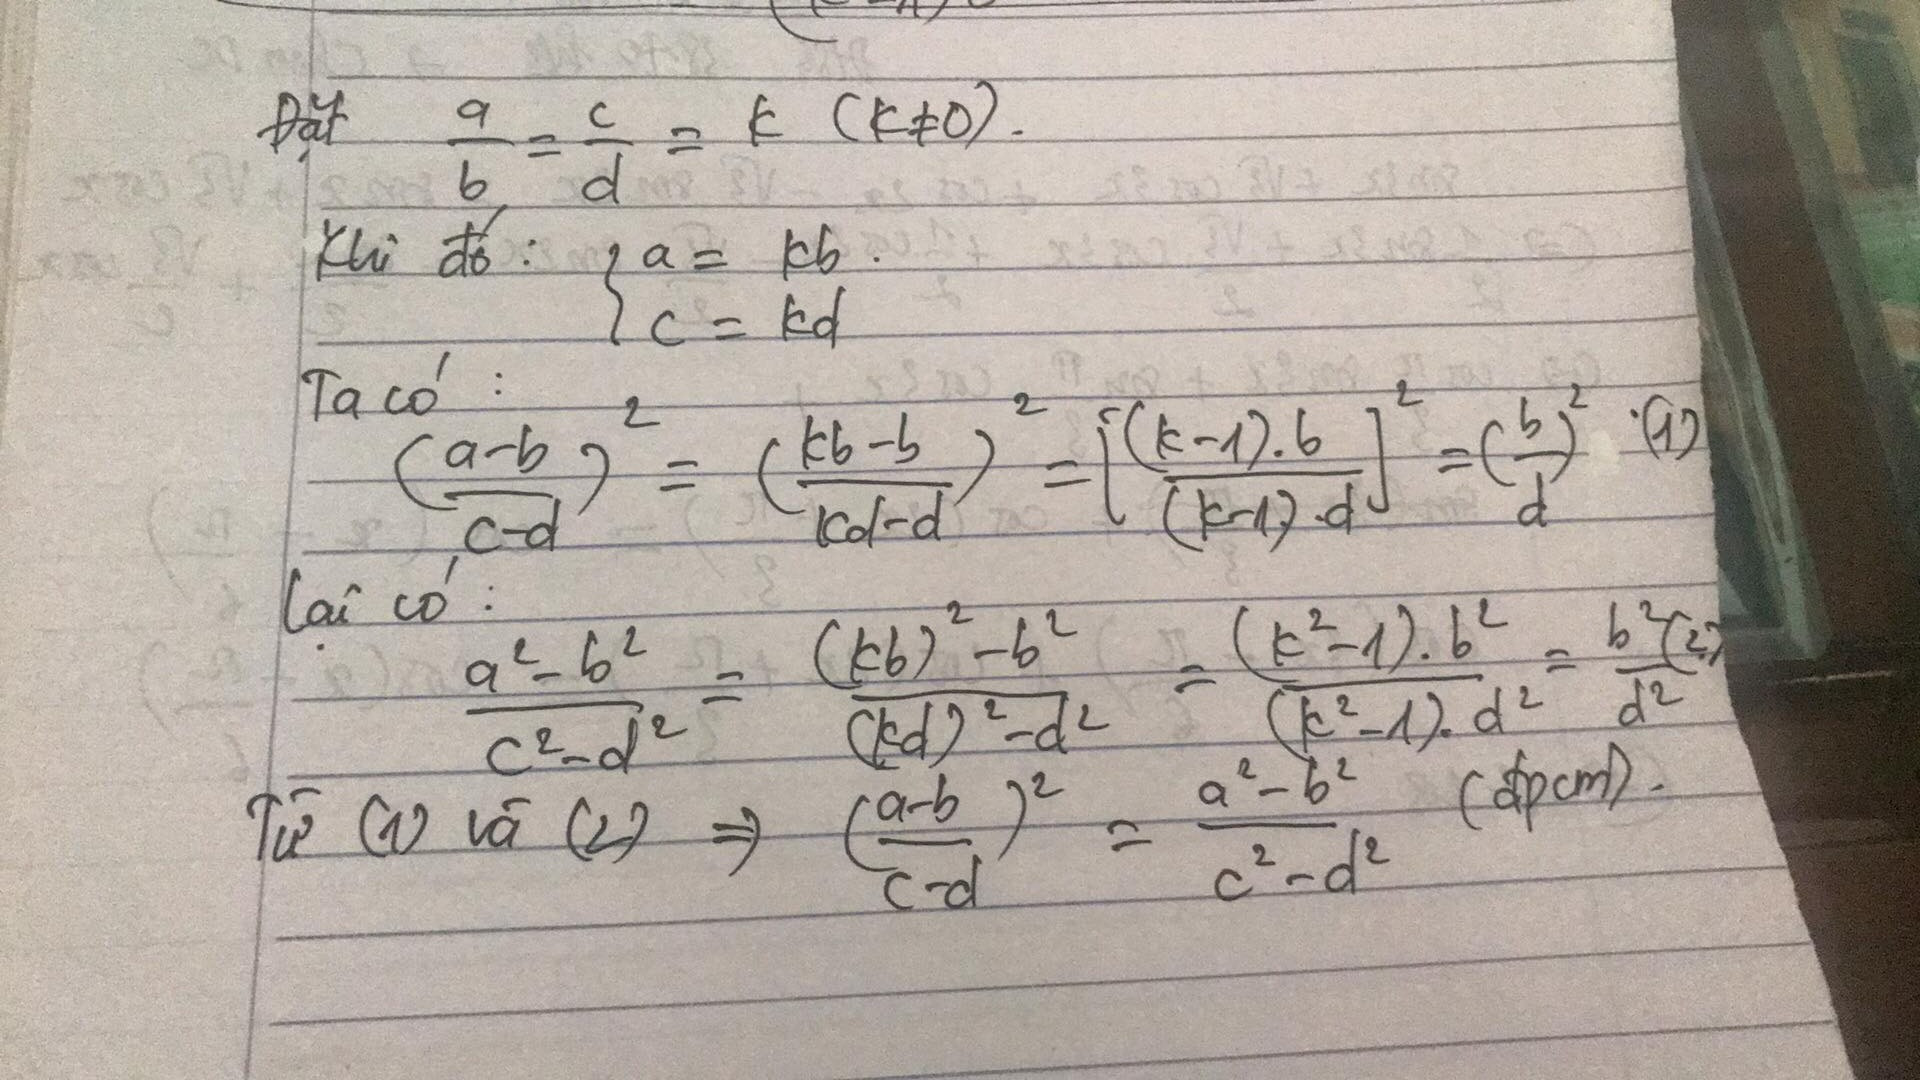 Đặt a/b = c/d = k (k≠0).
Khi đó: { a = kb.
c = kd
Ta có:
((a-b)/(c-d))² = ((kb-b)/(kd-d))² = [((k-1).b)/((k-1).d)]² = (b/d)² (1)
Lại có:
(a²-b²)/(c²-d²) = ((kb)²-b²)/((kd)²-d²) = ((k²-1).b²)/((k²-1).d²) = b²/d² (2)
Từ (1) và (2) => ((a-b)/(c-d))² = (a²-b²)/(c²-d²) (đpcm).